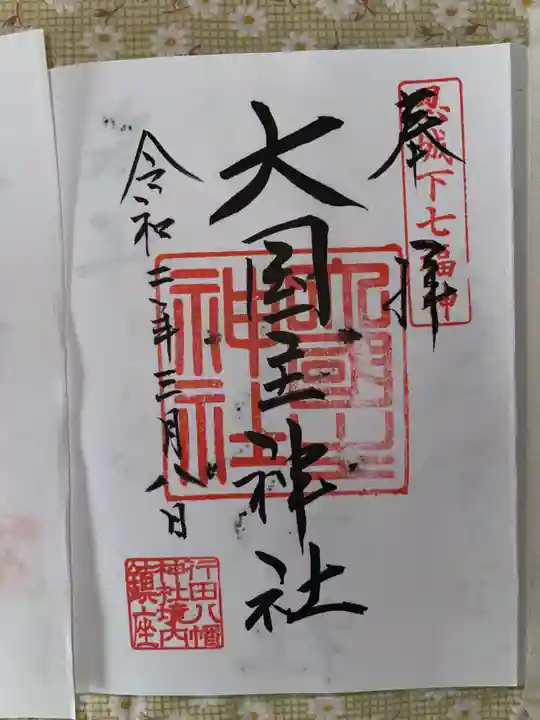 忍城下七福神
奉拝
大国主神社
大國主
神社
令和二年三月八日
行田八幡
神社境内
鎮座